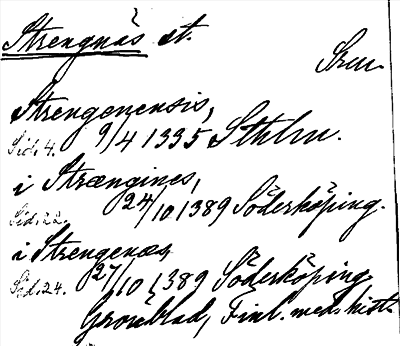 Strengnäs st.
Srm.
Strengenensis,
Sid. 4. 9/4 1335 Sthlm.
i Strængines,
Sid. 22. 24/10 1389 Söderköping.
i Strengenæs,
Sid. 24. 27/10 1389 Söderköping
Grönblad, Finl. med. hist.